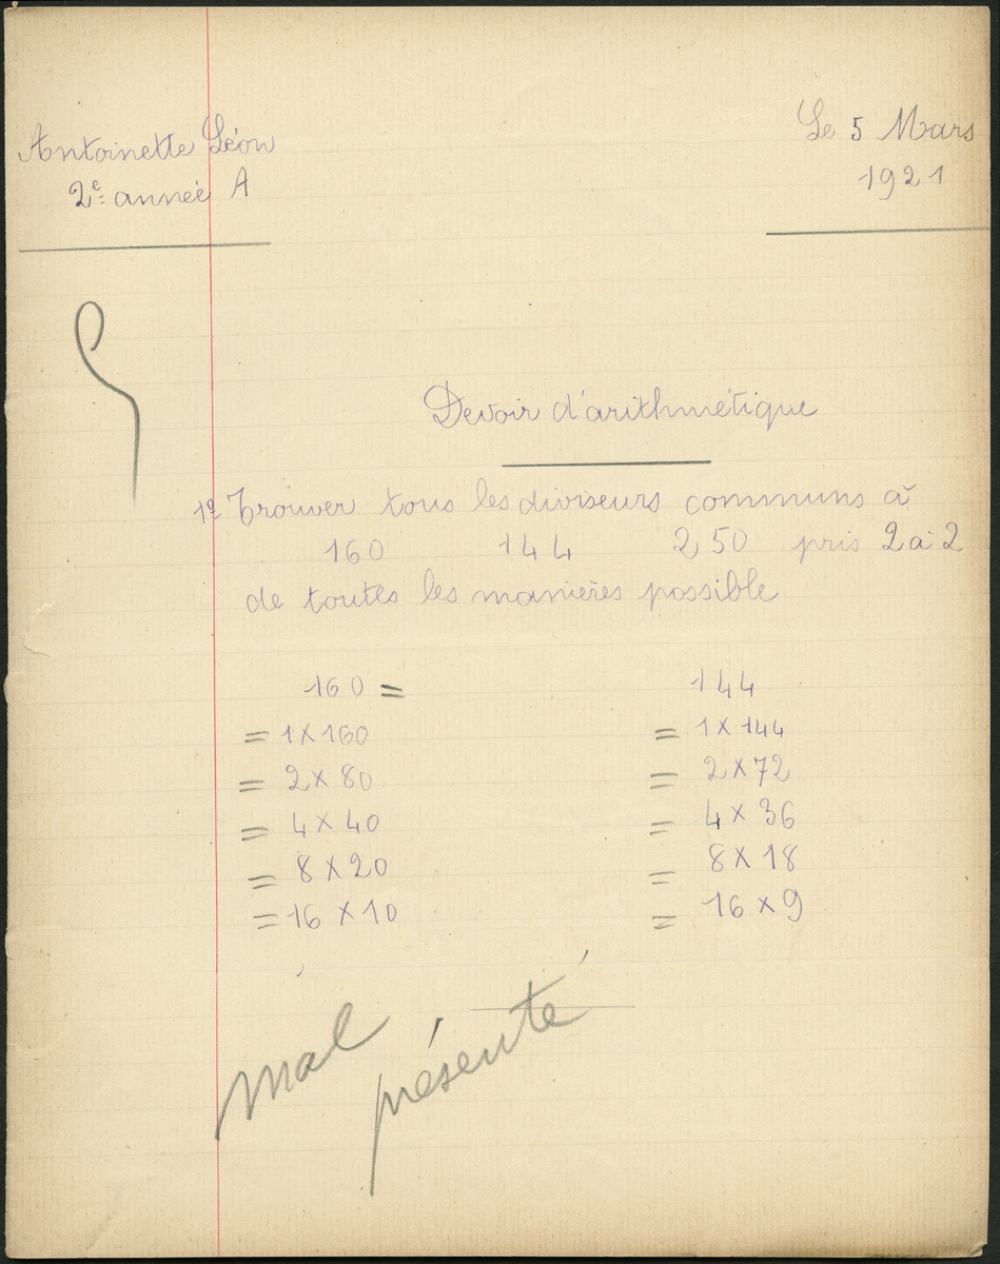 Antoinette Léon
2e année A
Le 5 Mars
1921
Devoir d'arithmétique
1º Trouver tous les diviseurs communs à
160 144 250 pris 2 à 2
de toutes les manières possible
160 = 144
= 1 X 160 = 1 X 144
= 2 X 80 = 2 X 72
= 4 X 40 = 4 X 36
= 8 X 20 = 8 X 18
= 16 X 10 = 16 X 9
mal
présenté